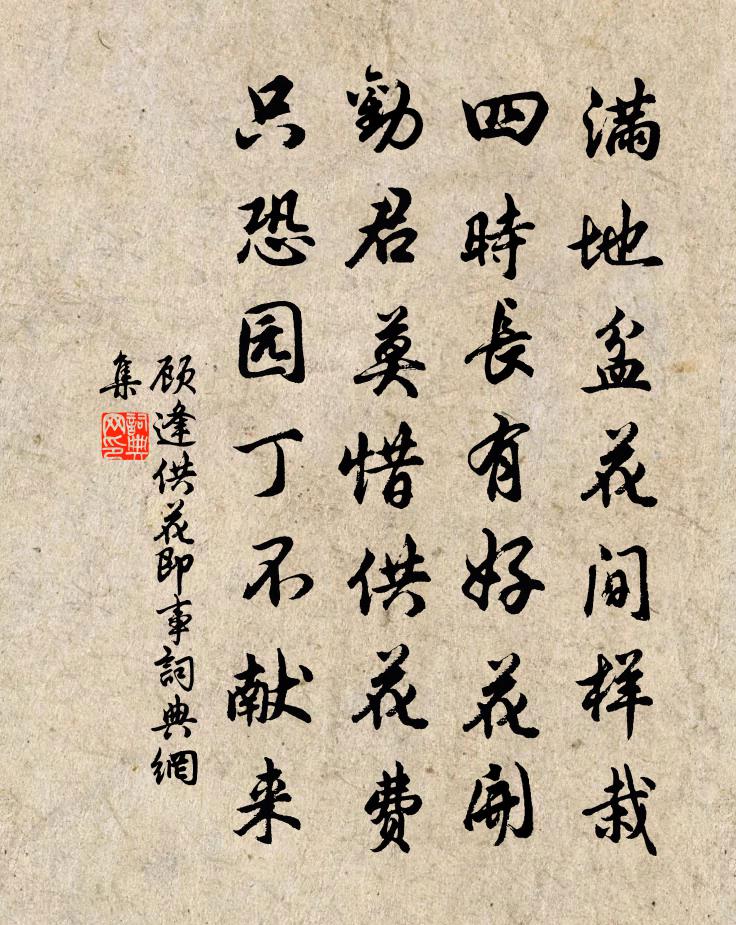 满地盆花间样栽
四時長有好花開
勸君莫惜供花費
只恐园丁不献来
顾逢供花即事詞典網
集
詞典
网印